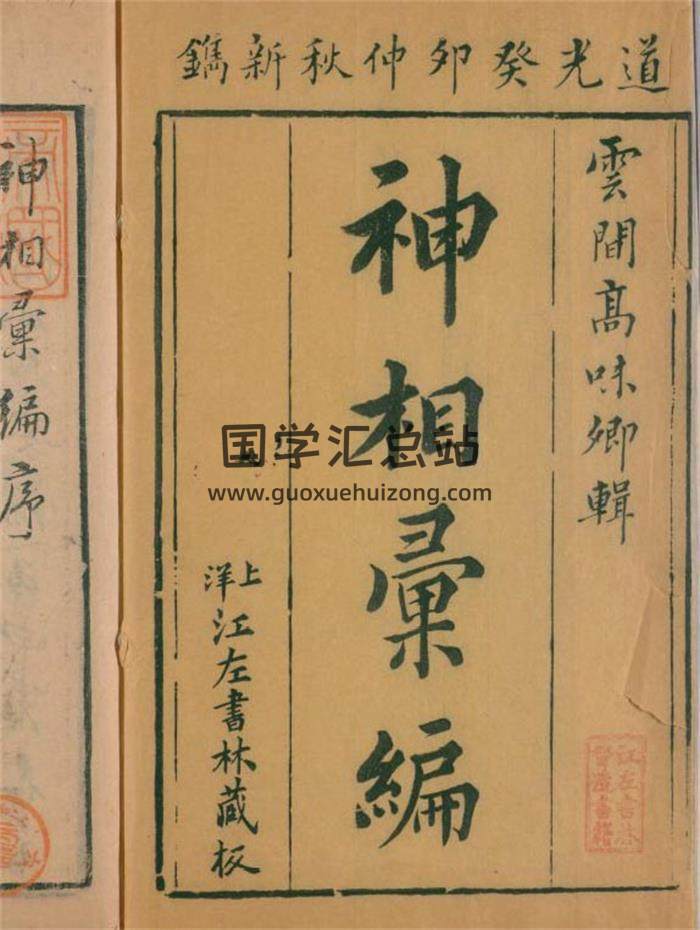 道光癸卯仲秋新鐫
雲間高味卿輯
神相彙編
上洋江左書林藏板
神相彙編序
国学汇总站
www.guoxuehuizong.com